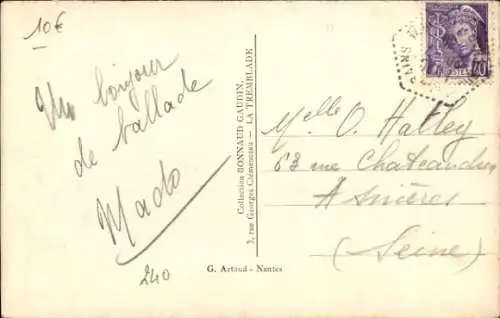 10€
Un bonjour
de ballade
Mado
240
Collection BONNAUD GAUDIN,
3, rue Georges Clémenceau — LA TREMBLADE
G. Artaud - Nantes
40
Melle O. Hatley
63 rue Chateaudun
Asnières
(Seine)